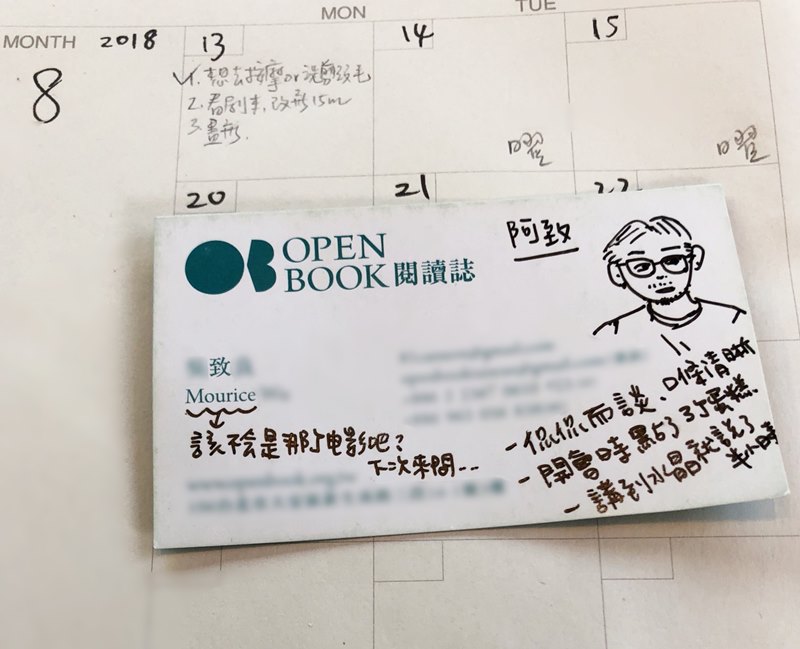 MON
TUE
MONTH 2018
8
13
14
15
✓1. 想去按摩or洗剪頭毛
2. 看劇本,改形15m
3. 畫
曜
日曜
20
21
22
OPEN
BOOK 閱讀誌
阿致
致
Mourice
該不會是那个电影吧?
下次來問...
- 侃侃而談、口條清晰
- 開會時點了3个蛋糕
- 講到水晶就說了
半小時